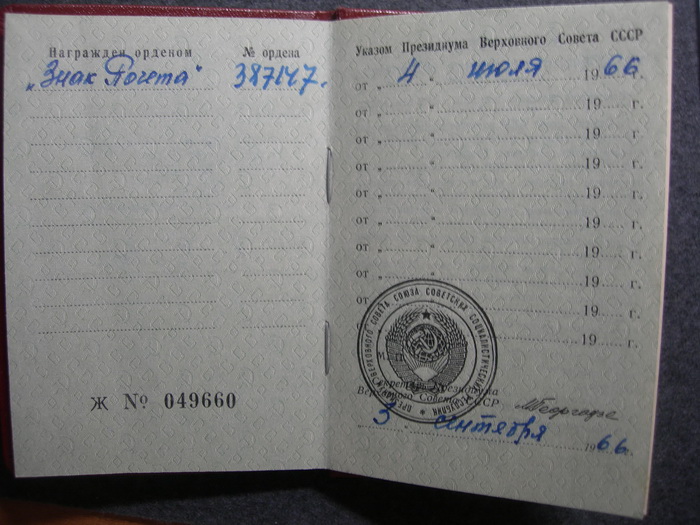 Награжден орденом № ордена
„Знак Почета“ 387147.
Ж № 049660
Указом Президиума Верховного Совета СССР
от „ 4 “ июля 1966 г.
от „ “ 19 г.
от „ “ 19 г.
от „ “ 19 г.
от „ “ 19 г.
от „ “ 19 г.
от „ “ 19 г.
от „ “ 19 г.
от „ “ 19 г.
19 г.
М. П.
Секретарь Президиума
Верховного Совета СССР
3 сентября 1966 г.
ПРЕЗИДИУМ ВЕРХОВНОГО СОВЕТА СОЮЗА СОВЕТСКИХ СОЦИАЛИСТИЧЕСКИХ РЕСПУБЛИК